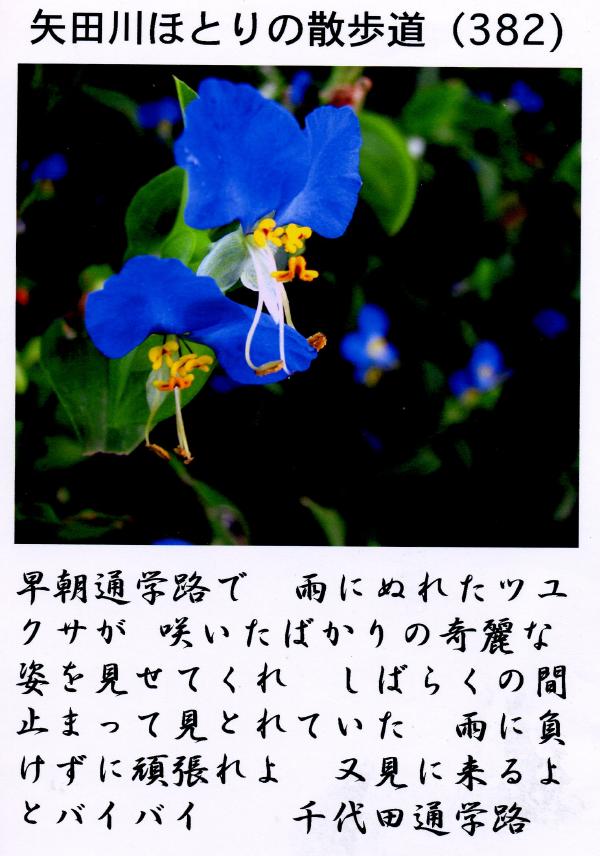 矢田川ほとりの散歩道（382）
早朝通学路で　雨にぬれたツユ
クサが 咲いたばかりの奇麗な
姿を見せてくれ　しばらくの間
止まって見とれていた　雨に負
けずに頑張れよ　又見に来るよ
とバイバイ　　千代田通学路